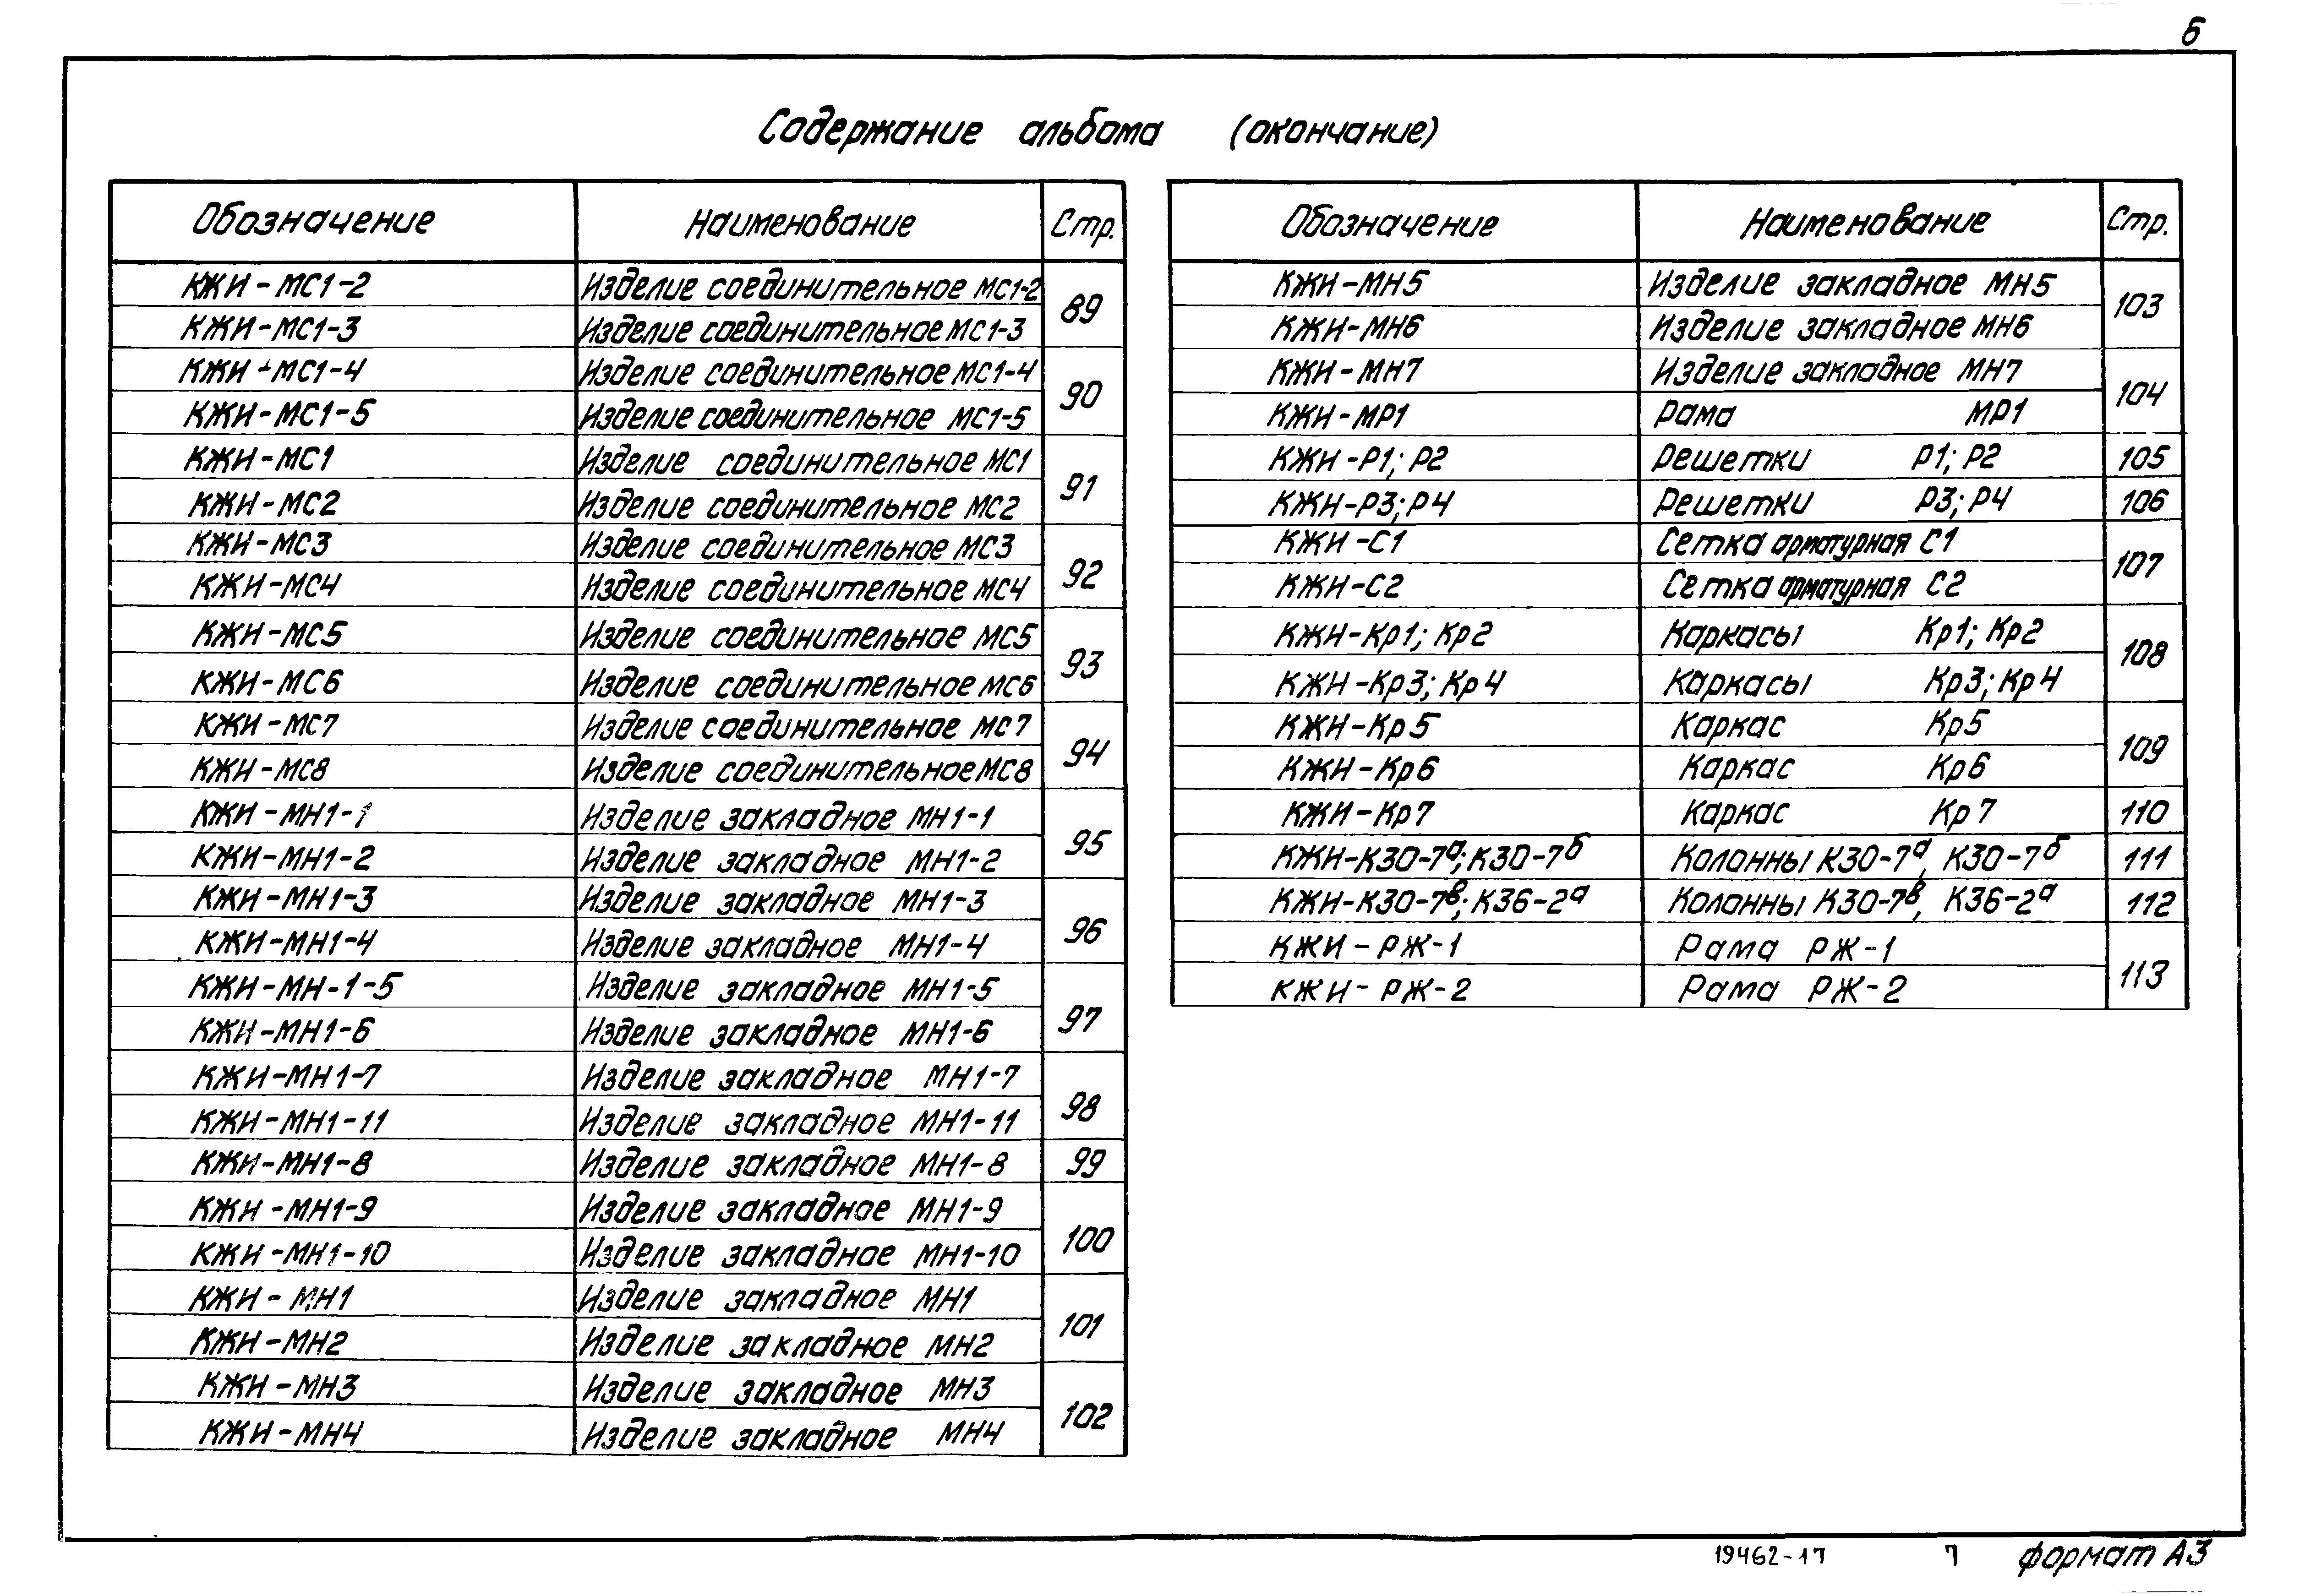 6
Содержание альбома (окончание)
Обозначение Наименование Стр.
КЖИ-МС1-2 Изделие соединительное МС1-2 89
КЖИ-МС1-3 Изделие соединительное МС1-3
КЖИ-МС1-4 Изделие соединительное МС1-4 90
КЖИ-МС1-5 Изделие соединительное МС1-5
КЖИ-МС1 Изделие соединительное МС1 91
КЖИ-МС2 Изделие соединительное МС2
КЖИ-МС3 Изделие соединительное МС3 92
КЖИ-МС4 Изделие соединительное МС4
КЖИ-МС5 Изделие соединительное МС5 93
КЖИ-МС6 Изделие соединительное МС6
КЖИ-МС7 Изделие соединительное МС7 94
КЖИ-МС8 Изделие соединительное МС8
КЖИ-МН1-1 Изделие закладное МН1-1 95
КЖИ-МН1-2 Изделие закладное МН1-2
КЖИ-МН1-3 Изделие закладное МН1-3 96
КЖИ-МН1-4 Изделие закладное МН1-4
КЖИ-МН-1-5 Изделие закладное МН1-5 97
КЖИ-МН1-6 Изделие закладное МН1-6
КЖИ-МН1-7 Изделие закладное МН1-7 98
КЖИ-МН1-11 Изделие закладное МН1-11
КЖИ-МН1-8 Изделие закладное МН1-8 99
КЖИ-МН1-9 Изделие закладное МН1-9 100
КЖИ-МН1-10 Изделие закладное МН1-10
КЖИ-МН1 Изделие закладное МН1 101
КЖИ-МН2 Изделие закладное МН2
КЖИ-МН3 Изделие закладное МН3 102
КЖИ-МН4 Изделие закладное МН4
Обозначение Наименование Стр.
КЖИ-МН5 Изделие закладное МН5 103
КЖИ-МН6 Изделие закладное МН6
КЖИ-МН7 Изделие закладное МН7 104
КЖИ-МР1 Рама МР1
КЖИ-Р1; Р2 Решетки Р1; Р2 105
КЖИ-Р3; Р4 Решетки Р3; Р4 106
КЖИ-С1 Сетка арматурная С1 107
КЖИ-С2 Сетка арматурная С2
КЖИ-Кр1; Кр2 Каркасы Кр1; Кр2 108
КЖИ-Кр3; Кр4 Каркасы Кр3; Кр4
КЖИ-Кр5 Каркас Кр5 109
КЖИ-Кр6 Каркас Кр6
КЖИ-Кр7 Каркас Кр7 110
КЖИ-К30-7ᵃ; К30-7б Колонны К30-7ᵃ, К30-7б 111
КЖИ-К30-7в; К36-2ᵃ Колонны К30-7в, К36-2ᵃ 112
КЖИ-РЖ-1 Рама РЖ-1 113
КЖИ-РЖ-2 Рама РЖ-2
19462-17 7 формат А3